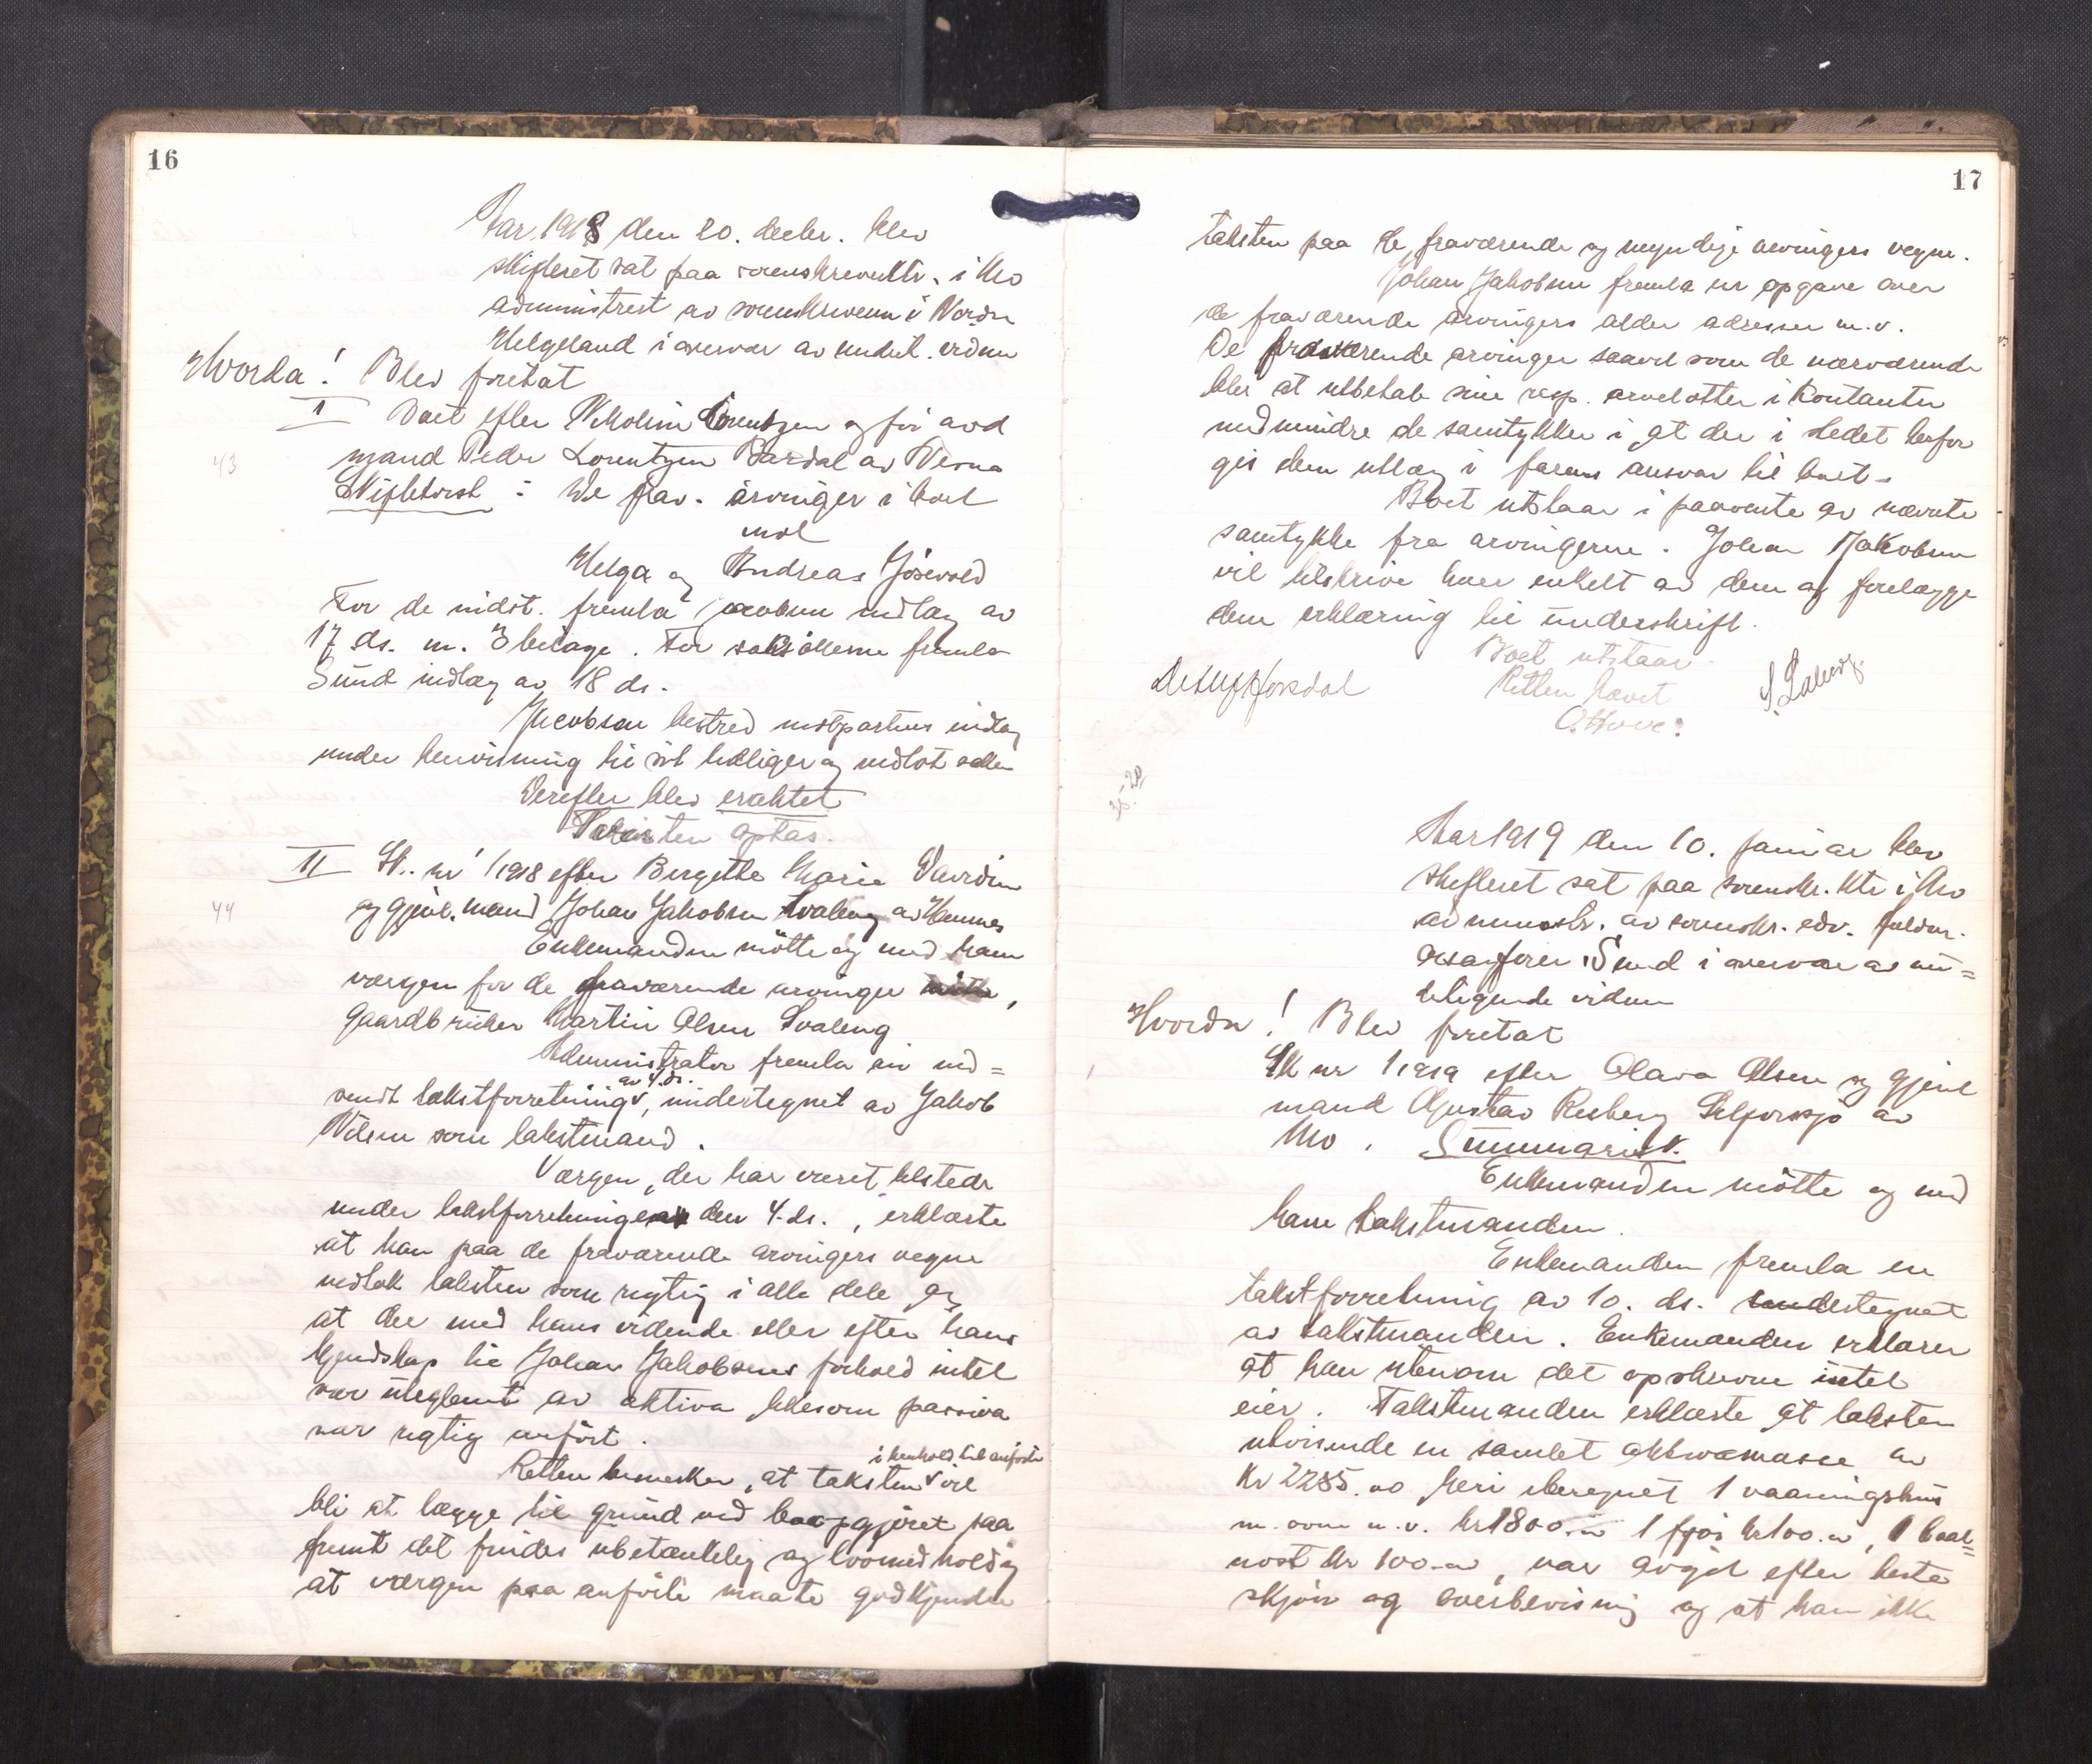 16
Aar 1918 den 20. decbr. blev
skifteret sat paa sorenskriverktr. i Mo
administrert av sorenskriveren i Nordre
Helgeland i overvær av undert. vidner
Hvorda! Blev foretat
I Boet efter Nikoline Lorentzen og før avd
43
mand Peder Lorentzen Bardal av Nesna
Skiftetvist: De frav. arvinger i boet
mot
Helga og Andreas Jösevold
For de nidst. fremla Jacobsen indlæg av
17 ds. m. 3 bilage. For saksökerne fremla
Sund indlæg av 18 ds.
Jacobsen bestred motpartens indlæg
under henvisning til sit tidligere og indlot saken
Derefter blev eraktet
Tvisten optas.
II Sk. nr 1/1918 efter Bergitte Marie Davidsen
44
og gjenl. mand Johan Jakobsen Svaleng av Hemnes
Enkemanden mötte og med ham
værgen for de fraværende arvinger
gaardbruker Martin Olsen Svaleng
Administrator fremla en ind=
sendt takstforretning av 4. ds., undertegnet av Jakob
Nilsen som takstmand.
Værgen, der har været tilstede
under takstforretningen den 4. ds., erklærte
at han paa de fraværende arvingers vegne
vedtok taksten som rigtig i alle dele og
at der med hans vidende eller efter hans
kjendskap til Johan Jakobsens forhold intet
var uteglemt av aktiva likesom passiva
var rigtig anfört.
Retten bemerker, at taksten i henhold til anförte vil
bli at lægge til grund ved boopgjöret paa
grund det findes ubetænkelig og lovmedholdig
at værgen paa anförte maate godkjender
17
taksten paa de fraværende og myndige arvingers vegne.
Johan Jakobsen fremla en opgave over
de fraværende arvingers alder adresser m.v.
De fraværende arvinger saavel som de nærværende
blir at utbetale sine resp. arvelotter i kontanter
medmindre de samtykker i at der i stedet herfor
gis dem utlæg i farens ansvar til boet.
Boet utstaar i paavente av nævnte
samtykke fra arvingerne. Johan Jakobsen
vil tilskrive hver enkelt av dem og forelægge
dem erklæring til underskrift.
Boet utstaar
Retten hævet
O. Hove
36-20
Aar 1919 den 10. januar blev
skifteret sat paa sorenskr. ktr i Mo
administr. av sorenskr. edv. fuldm.
o.r.sakförer Sund i overvær av un=
dertegnede vidner
Hvorda! Blev foretat
1
Sk nr 1/1919 efter Olava Olsen og gjenl
mand Gustav Resberg Selforssjö av
Mo. Summarisk.
Enkemanden mötte og med
ham takstmanden.
Enkemanden fremla en
takstforretning av 10. ds. undertegnet
av takstmanden. Enkemanden erklærer
at han utenom det opskrevne intet
eier. Takstmanden erklærte at taksten
utvisende en samlet aktivamasse av
Kr 2285.00 heri iberegnet 1 vaaningshus
m. ovne m.v. kr 1800.00 1 fjös kr 100.00, 1 baat=
nost kr 100.00, var avgit efter beste
skjön og overbevisning og at han ikke